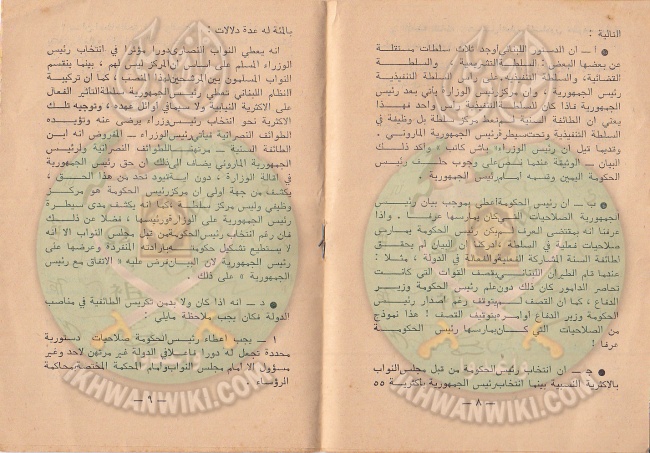 التالية :
● أ ـ ان الدستور اللبناني أوجد ثلاث سلطات مستقلة
عن بعضها البعض : السلطة التشريعية والسلطة
القضائية، والسلطة التنفيذية. على رأس السلطة التنفيذية
رئيس الجمهورية ، وان مركز رئيس الوزارة يأتي بعد رئيس
الجمهورية فاذا كان السلطة التنفيذية رئيس واحد فهذا
يعني ان الطائفة السنية لم تعط مركز سلطة بل وظيفة في
السلطة التنفيذية وتحت سيطرة رئيس الجمهورية الماروني .
وقديما قيل ان رئيس الوزراء باش كاتب ، وأكد ذلك
البيان ـ الوثيقة عندما نص على وجوب حلف رئيس
الحكومة اليمين وقسمه أمام رئيس الجمهورية .
● ب ـ ان رئيس الحكومة اعطي بموجب بيان رئيس
الجمهورية الصلاحيات التي كان يمارسها عرفا . واذا
عرفنا انه بمقتضى العرف لم يكن رئيس الحكومة يمارس
صلاحيات فعلية في السلطة ، ادركنا ان البيان لم يحقق
لطائفة السنة المشاركة الفعلية والفعالة في الدولة ، مثلا :
عندما قام الطيران اللبناني بقصف القوات التي كانت
تحاصر الدامور كان ذلك دون علم رئيس الحكومة وزير
الدفاع ، كما ان القصف لم يتوقف رغم اصدار رئيس
الحكومة وزير الدفاع أوامر بتوقيف القصف ! هذا نموذج
من الصلاحيات التي كان يمارسها رئيس الحكومة
عرفا !
● جـ ـ ان انتخاب رئيس الحكومة من قبل مجلس النواب
بالاكثرية النسبية بينما انتخاب رئيس الجمهورية باكثرية ٥٥
ـ ٨ ـ
بالمئة له عدة دلالات :
انه يعطي النواب النصارى دورا مؤثرا في انتخاب رئيس
الوزراء المسلم على اساس ان المركز ليس لهم ، بينما ينقسم
النواب المسلمون بين المرشحين لهذا المنصب ، كما ان تركيبة
النظام اللبناني تعطي رئيس الجمهورية سلطة التأثير الفعال
على الاكثرية النيابية ولا سيما في أوائل عهده ، وتوجيه تلك
الاكثرية نحو انتخاب رئيس وزراء يرضى عنه وتؤيده
الطوائف النصرانية فيأتي رئيس الوزراء ـ المفروض انه ابن
الطائفة السنية ـ مرتهنا للطوائف النصرانية ولرئيس
الجمهورية الماروني يضاف الى ذلك ان حق رئيس الجمهورية
في اقالة الوزارة ، دون أية قيود تحد من هذا الحق ،
يكشف من جهة أولى ان مركز رئيس الحكومة هو مركز
وظيفي وليس مركز سلطة ، كما انه يكشف مدى سيطرة
رئيس الجمهورية على الوزارة ورئيسها ، فضلا عن ذلك
فان رغم انتخاب رئيس الحكومة من قبل مجلس النواب الا انه
لا يستطيع تشكيل حكومته بمبادرته المنفردة وعرضها على
رئيس الجمهورية لان البيان فرض عليه « الاتفاق مع رئيس
الجمهورية » على ذلك .
● د ـ انه اذا كان ولا بد من تكريس الطائفية في مناصب
الدولة فكان يجب ملاحظة مايلي :
١ ـ يجب اعطاء رئيس الحكومة صلاحيات دستورية
محددة تجعل له دورا فاعلا في الدولة غير مرتهن لاحد وغير
مسؤول الا امام مجلس النواب وأمام المحكمة المختصة بمحاكمة
الرؤساء .
ـ ٩ ـ
IKHWANWIKI.COM
IKHWANWIKI.COM